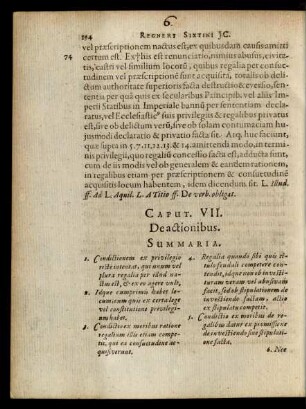 6
194 REGNERI SIXTINI JC.
vel præscriptionem nactus est, ex quibusdam causis amitti
74 certum est. Ex his est renunciatio, nimius abusus, civita-
tis, castri vel similium locorũ, quibus regalia per consue-
tudinem vel præscriptionē sunt acquisita, totalis ob deli-
ctum authoritate superioris facta destructio & eversio, sen-
tentia per quã quis ex ordine à Principib. vel aliis Impe-
rii Statibus in Imperiale bannũ per sententiam decla-
ratus, vel Ecclesiastic9 suis privilegiis & regalibus privatus
est, sive ob delictum verũ, sive ob solam contumaciam hu-
jusmodi declaratio & privatio facta sit. Atq; huc faciunt,
quæ supra in 5. 7. 11. 12. 13. & 14. amittendi modo, in termi-
nis privilegii, quo regaliũ concessio facta est, adducta sunt,
cum de iis modis vel ob generalem & eandem rationem,
in regalibus etiam per præscriptionem & consuetudinē
acquisitis locum habentem, idem dicendum sit. L. illud.
ff. Ad L. Aquil. L. A Titio ff. De verb. obligat.
CAPUT. VII.
De actionibus.
SUMMARIA.
1. Condictionem ex privilegio
rite intentat, qui unum vel
plura regalia per illud na-
ctus est, & ex eo agere vult.
2. Idque cumprimis habet lo-
cum tum quis ex certa lege
vel constitutione privilegi-
um habet.
3. Condictio ex moribus ratione
regalium illis etiam compe-
tit, qui ex consuetudine ac-
quisiverunt.
4. Regalia quando sibi quis ti-
tulo feudali competere con-
tendit, idque non ob investi-
turam veram vel abusivam
facit, sed ob stipulationem de
investiendo factam, actio
ex stipulatu competit.
5. Condictio ex moribus de re-
galibus datur ex promissione
de investiendo sine stipulatio-
ne facta.
6. Nec